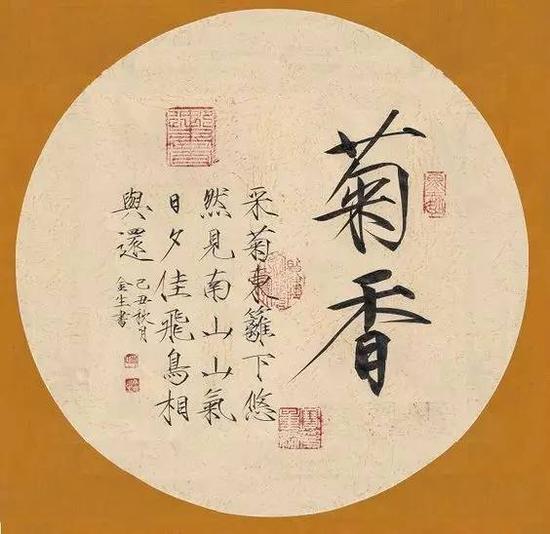 菊香
采菊東籬下悠
然見南山山氣
日夕佳飛鳥相
與還
己丑秋月
金生書